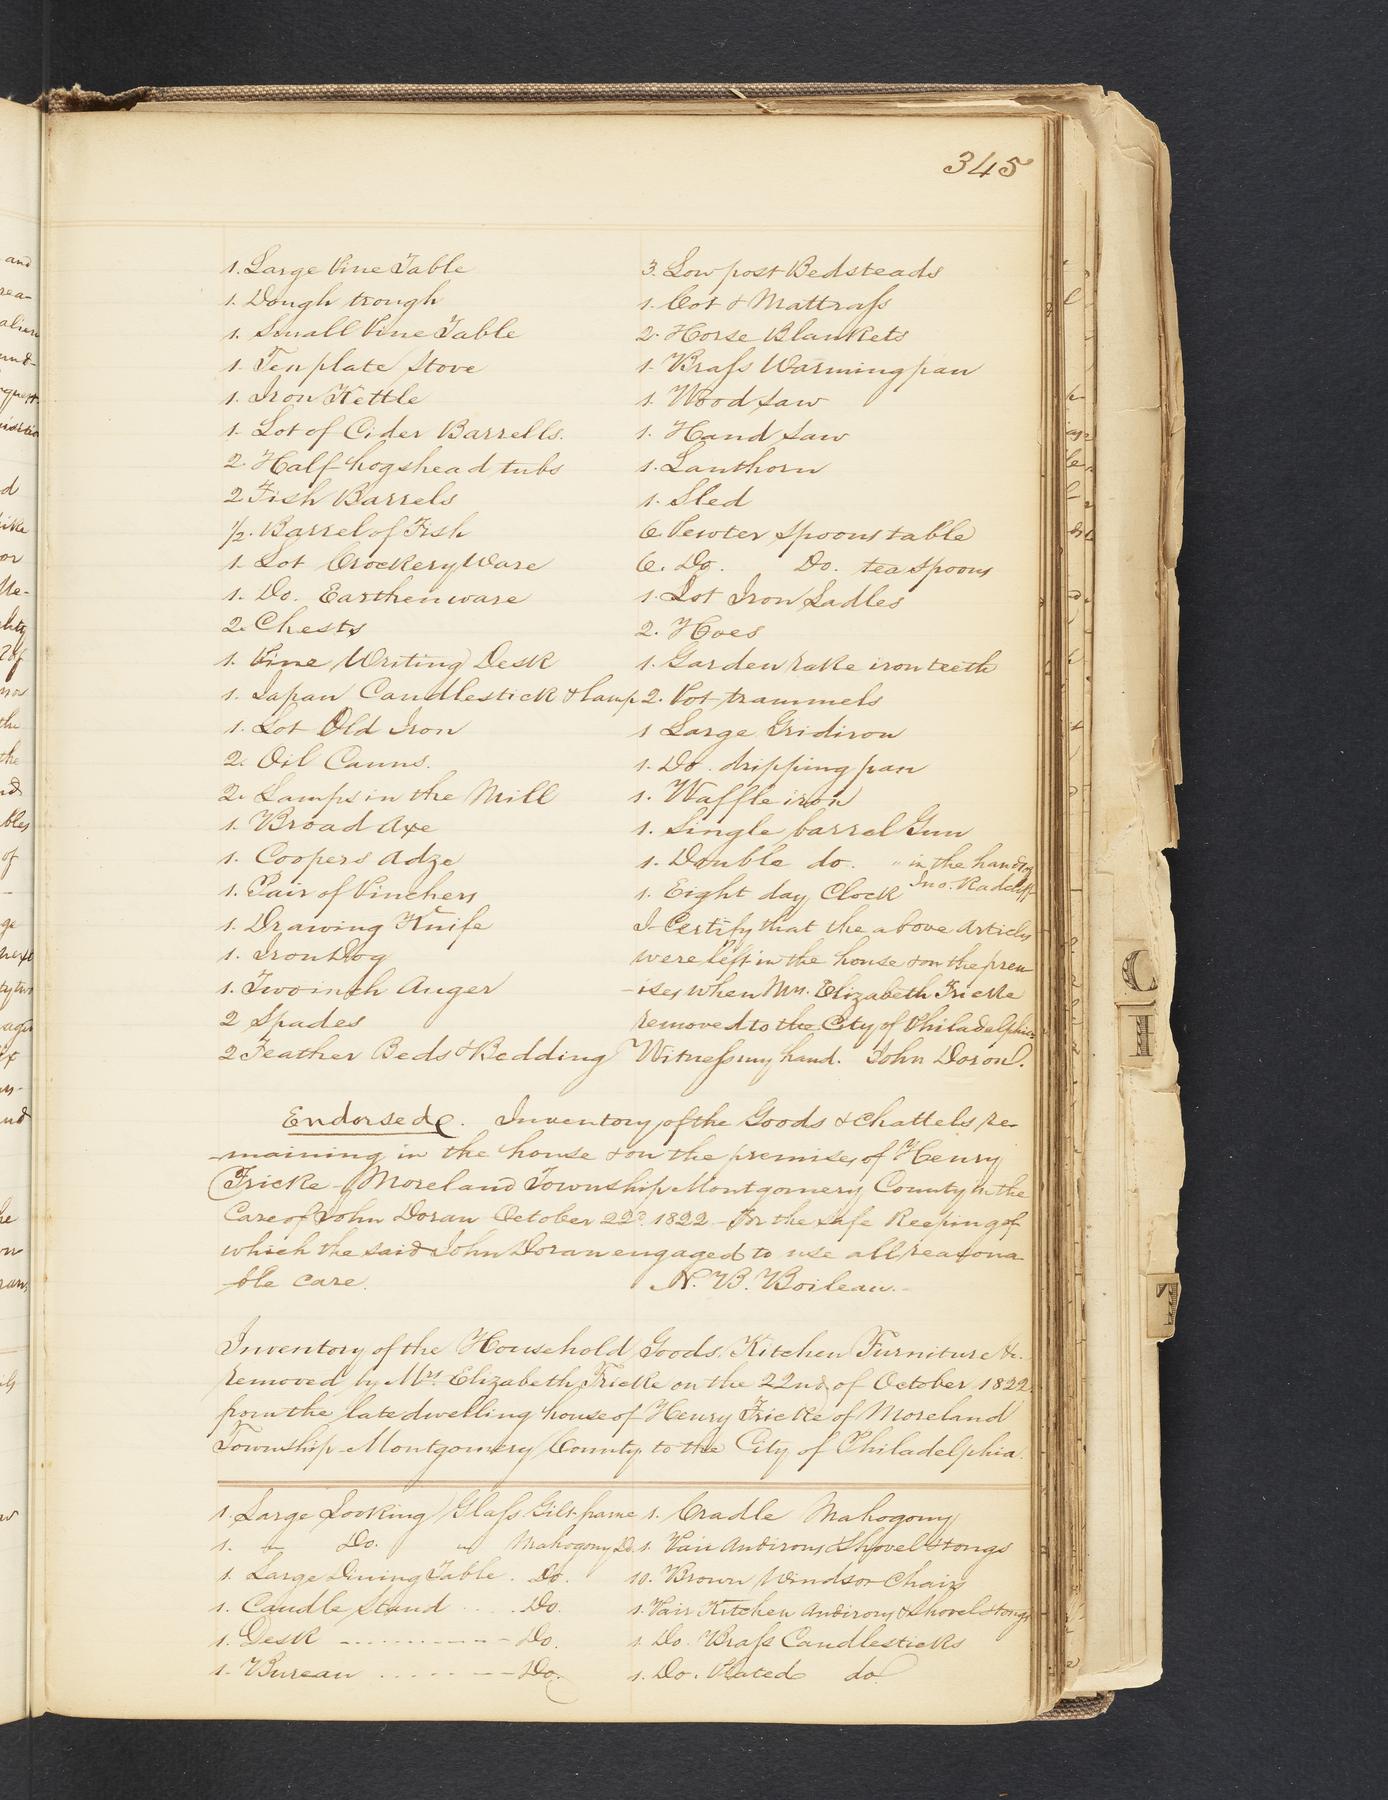 345
1. Large Pine Table
1. Dough trough
1. Small Pine Table
1. Ten plate Stove
1. Iron Kettle
1. Lot of Cider Barrells.
2. Half hogshead tubs
2 Fish Barrels
1/2. Barrel of Fish
1. Lot Crockery Ware
1. Do. Earthenware
2. Chests
1. Pine Writing Desk
1. Japan Candlestick & lamp
1. Lot Old Iron
2. Oil Canns.
2. Lamps in the Mill
1. Broad Axe
1. Coopers Adze
1. Pair of Pinchers
1. Drawing Knife
1. Iron Dog
1. Two inch Auger
2 Spades
2 Feather Beds & Bedding
3. Low post Bedsteads
1. Cot & Mattrass
2. Horse Blankets
1. Brass Warming pan
1. Wood saw
1. Hand saw
1. Lanthorn
1. Sled
6. Pewter spoons table
6. Do. Do. tea spoons
1. Lot Iron Ladles
2. Hoes
1. Garden rake iron teeth
2. Pot trammels
1 Large Gridiron
1. Do. dripping pan
1. Waffle iron
1. Single barrel Gun
1. Double do. " in the hands of
Jno. Radcliff
1. Eight day Clock
I Certify that the above articles
were left in the house & on the prem
-ises when Mrs. Elizabeth Fricke
removed to the City of Philadelphia
Witness my hand. John Doron.
Endorsed. Inventory of the Goods & chattels re-
-maining in the house & on the premises of Henry
Fricke - Moreland Township Montgomery County in the
Care of John Doran October 22d. 1822 - For the safe keeping of
which the said John Doran engaged to use all reasona-
-ble care. N. B. Boileau.
Inventory of the Household Goods, Kitchen Furniture &c.
removed by Mrs. Elizabeth Fricke on the 22nd of October 1822
from the late dwelling house of Henry Fricke of Moreland
Township Montgomery County to the City of Philadelphia.
1. Large Looking Glass Gilt frame
1. " Do. " Mahogony Do.
1. Large Dining Table. Do.
1. Candle Stand .... Do.
1. Desk ---------- Do.
1. Bureau ------- Do.
1. Cradle Mahogony
1. Pair Andirons Shovel & tongs
10. Brown Windsor Chairs
1. Pair Kitchen Andirons & Shovel & tongs
1. Do. Brass Candlesticks
1. Do. Plated do.
C
I
T